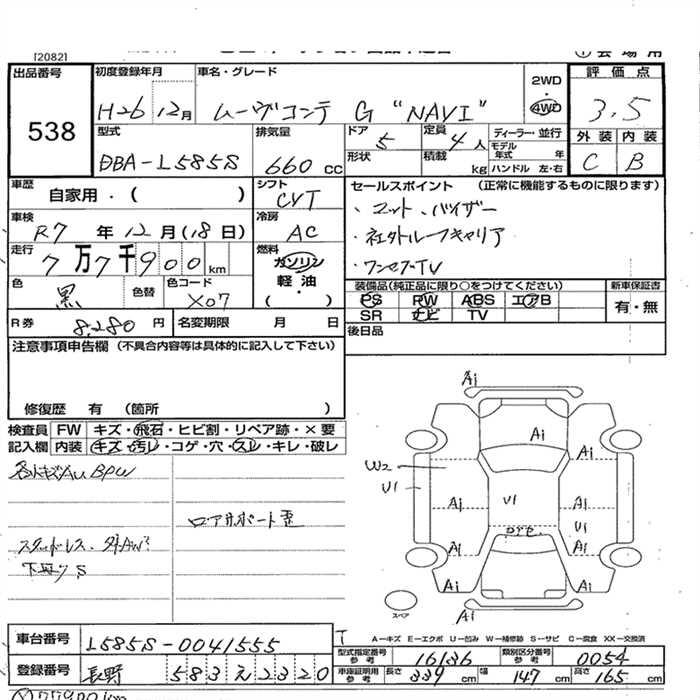 [2082]
出品番号 538
初度登録年月 H26 12月
車名・グレード ムーヴコンテ G "NAVI"
2WD
4WD
評価点 3.5
外装 内装
C B
型式 DBA-L585S
排気量 660 cc
ドア 5
形状
定員 4 人
積載 kg
ディーラー・並行
モデル年式 年
ハンドル 左・右
車歴 自家用・( )
シフト CVT
セールスポイント (正常に機能するものに限ります)
・エット、バイザー
・社外ルーフキャリア
・ワンセグTV
車検 R7 年 12 月 (18 日)
冷房 AC
走行 7万7千900 km
燃料 ガソリン
軽油・
( )
色 黒
色替
色コード X07
装備品(純正品に限り○をつけてください)
PS PW ABS エアB
SR ナビ TV
新車保証書
有・無
R券 8,280 円
名変期限 月 日
後日品
注意事項申告欄 (不具合内容等は具体的に記入して下さい)
修復歴 有 (箇所 )
検査員記入欄
FW キズ・飛石・ヒビ割・リペア跡・×要
内装 キズ・汚レ・コゲ・穴・スレ・キレ・破レ
ロアサポート歪
スタッドレス、
下廻りS
Ai
Ai
W2
U1
Ai
U1
Ai
U1
Ai
Ai
Ai
Ai
Ai
スペア
A−キズ E−エクボ U−凹み W−補修跡 S−サビ C−腐食 XX−交換済
車台番号 L585S-0041555
登録番号 長野 583 え 2320
型式指定番号 参考 16136
類別区分番号 参考 0054
車庫証明用 参考 長さ 339 cm 幅 147 cm 高さ 165 cm